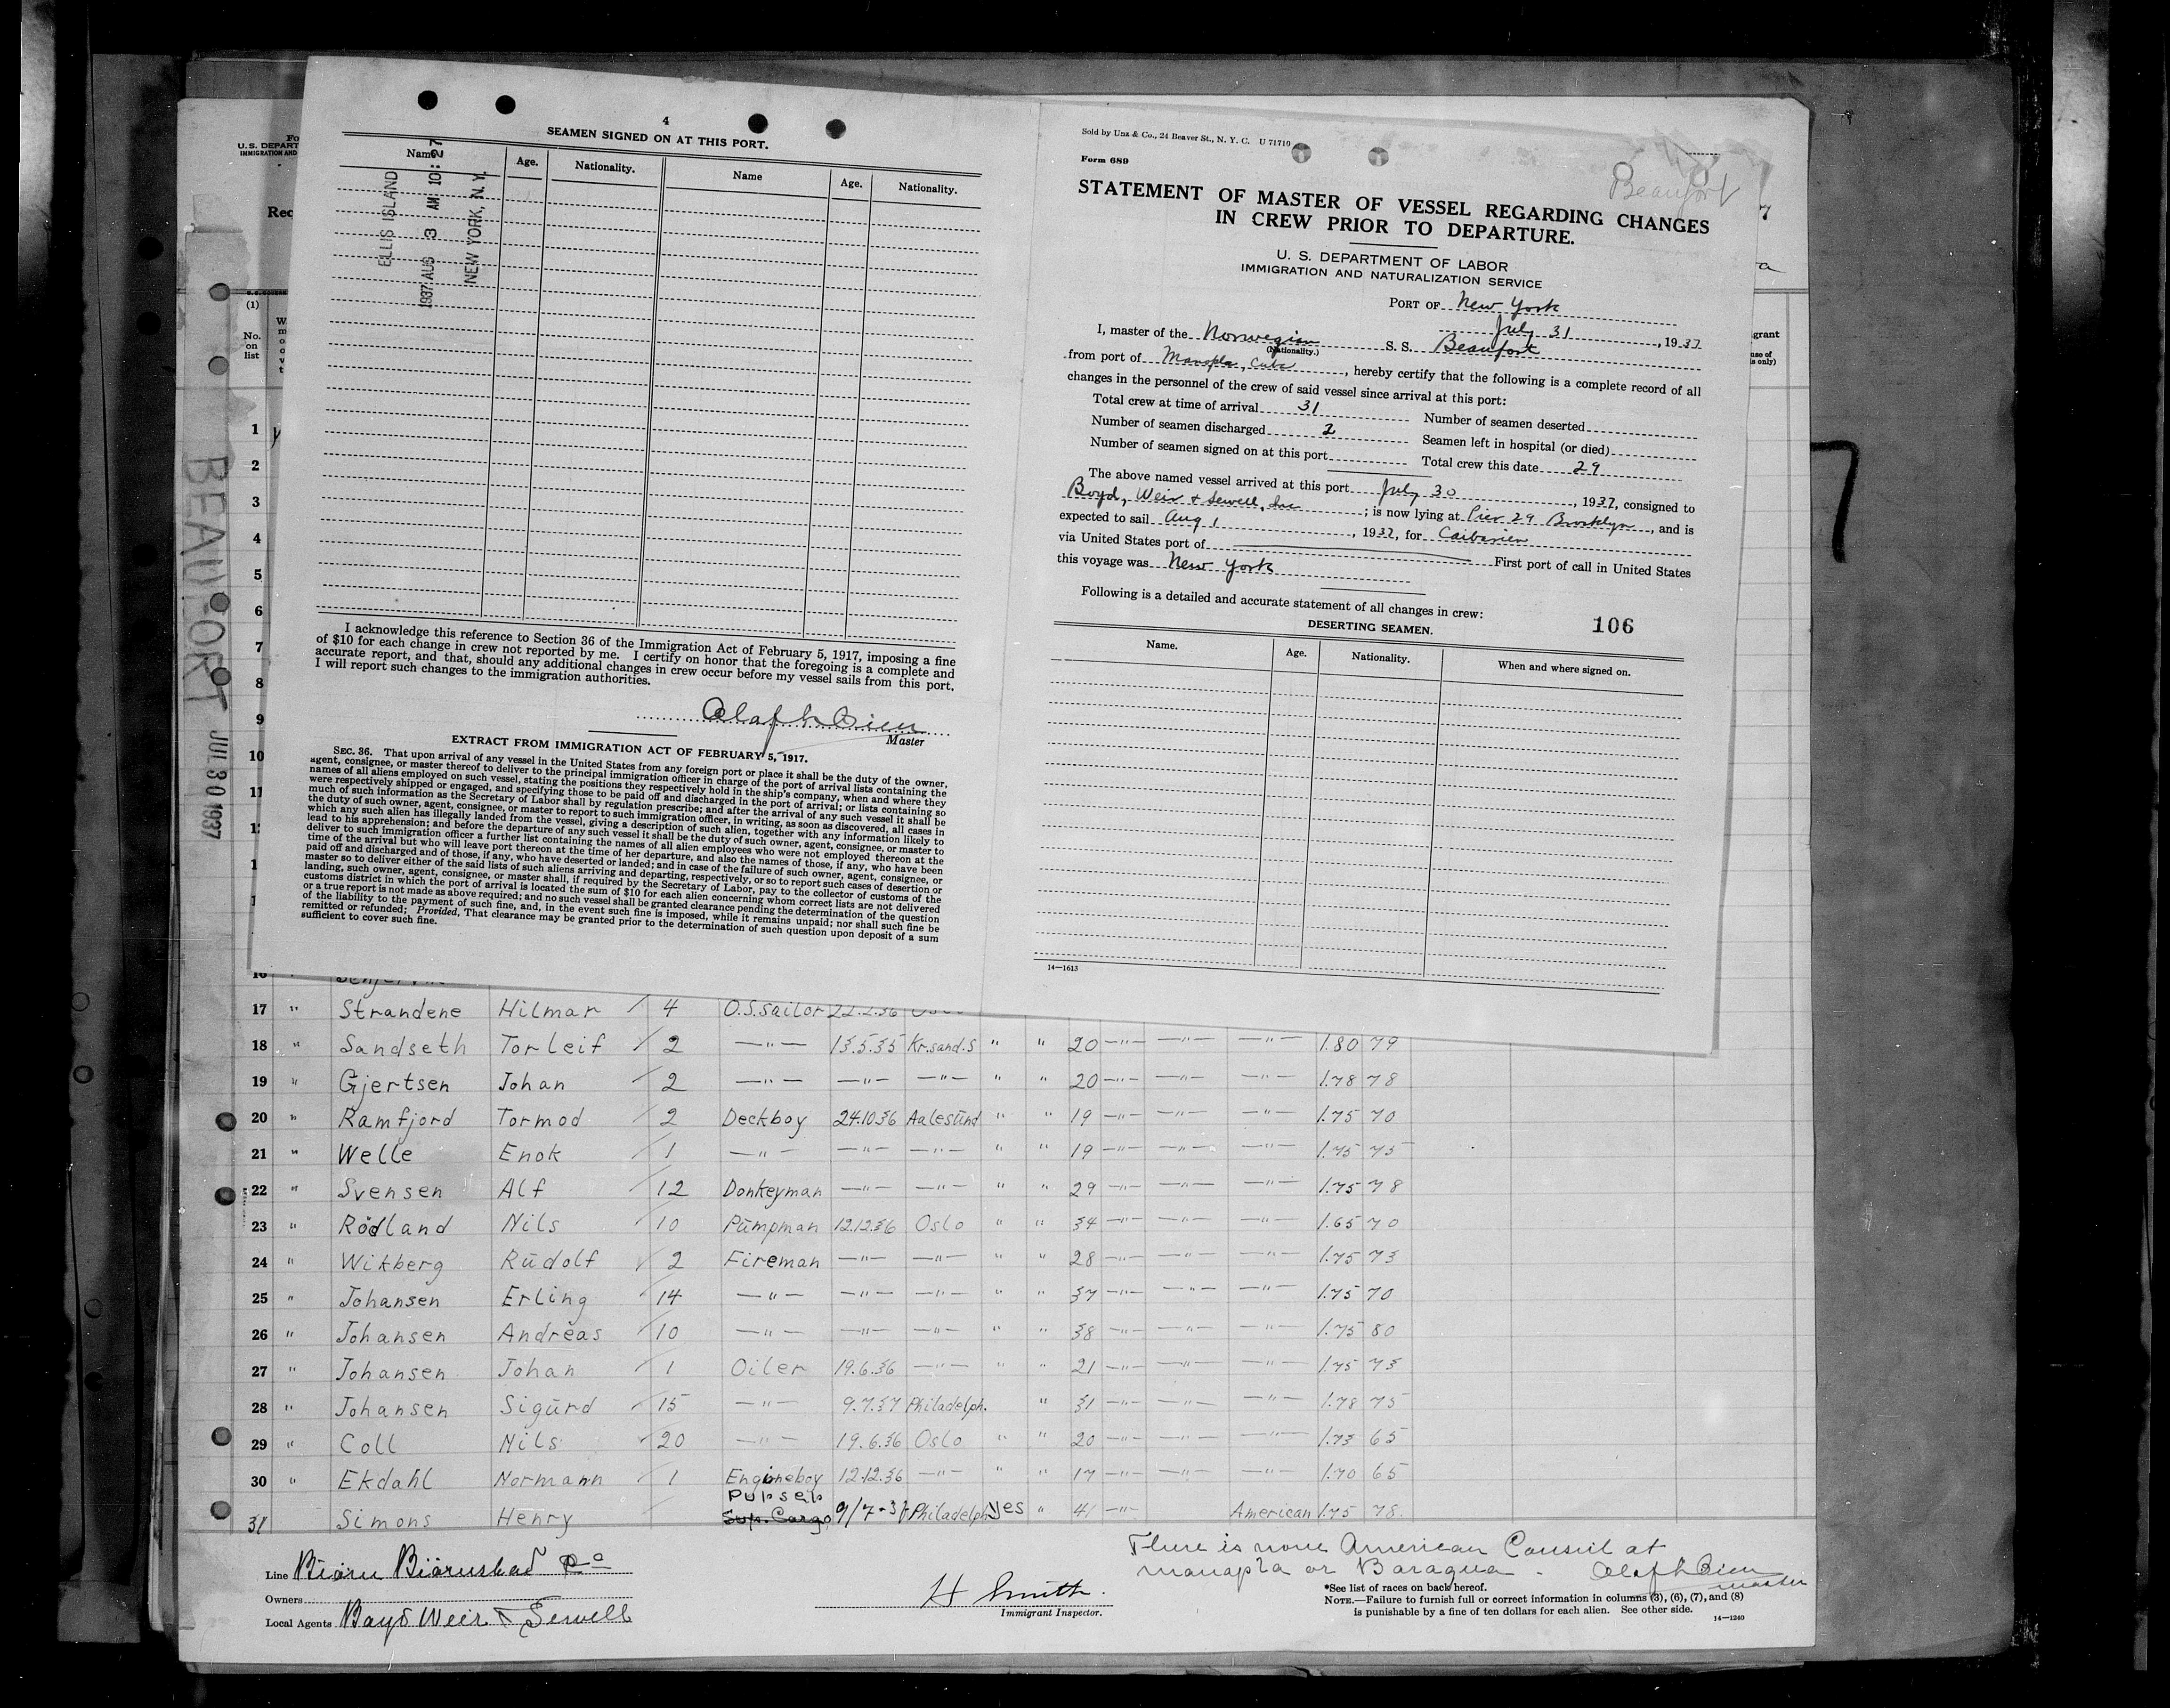 4
SEAMEN SIGNED ON AT THIS PORT.
Name Age. Nationality. Name Age. Nationality.
ELLIS ISLAND
1937 AUG 3 AM 10:27
NEW YORK, N. Y.
I acknowledge this reference to Section 36 of the Immigration Act of February 5, 1917, imposing a fine
of $10 for each change in crew not reported by me. I certify on honor that the foregoing is a complete and
accurate report, and that, should any additional changes in crew occur before my vessel sails from this port,
I will report such changes to the immigration authorities.
Olaf h Bien
Master
EXTRACT FROM IMMIGRATION ACT OF FEBRUARY 5, 1917.
SEC. 36. That upon arrival of any vessel in the United States from any foreign port or place it shall be the duty of the owner,
agent, consignee, or master thereof to deliver to the principal immigration officer in charge of the port of arrival lists containing the
names of all aliens employed on such vessel, stating the positions they respectively hold in the ship's company, when and where they
were respectively shipped or engaged, and specifying those to be paid off and discharged in the port of arrival; or lists containing so
much of such information as the Secretary of Labor shall by regulation prescribe; and after the arrival of any such vessel it shall be
the duty of such owner, agent, consignee, or master to report to such immigration officer, in writing, as soon as discovered, all cases in
which any such alien has illegally landed from the vessel, giving a description of such alien, together with any information likely to
lead to his apprehension; and before the departure of any such vessel it shall be the duty of such owner, agent, consignee, or master to
deliver to such immigration officer a further list containing the names of all alien employees who were not employed thereon at the
time of the arrival but who will leave port thereon at the time of her departure, and also the names of those, if any, who have been
paid off and discharged and of those, if any, who have deserted or landed; and in case of the failure of such owner, agent, consignee, or
master so to deliver either of the said lists of such aliens arriving and departing, respectively, or so to report such cases of desertion or
landing, such owner, agent, consignee, or master shall, if required by the Secretary of Labor, pay to the collector of customs of the
customs district in which the port of arrival is located the sum of $10 for each alien concerning whom correct lists are not delivered
or a true report is not made as above required; and no such vessel shall be granted clearance pending the determination of the question
of the liability to the payment of such fine, and, in the event such fine is imposed, while it remains unpaid; nor shall such fine be
remitted or refunded; Provided, That clearance may be granted prior to the determination of such question upon deposit of a sum
sufficient to cover such fine.
Sold by Unz & Co., 24 Beaver St., N. Y. C. U 71710
Form 689
Beaufort
STATEMENT OF MASTER OF VESSEL REGARDING CHANGES
IN CREW PRIOR TO DEPARTURE.
U. S. DEPARTMENT OF LABOR
IMMIGRATION AND NATURALIZATION SERVICE
PORT OF New York
July 31, 1937
I, master of the Norwegian S. S. Beaufort
(Nationality.)
from port of Manopla, Cuba, hereby certify that the following is a complete record of all
changes in the personnel of the crew of said vessel since arrival at this port:
Total crew at time of arrival 31 Number of seamen deserted
Number of seamen discharged 2 Seamen left in hospital (or died)
Number of seamen signed on at this port Total crew this date 29
The above named vessel arrived at this port July 30, 1937, consigned to
Boyd, Weir & Sewell, Inc; is now lying at Pier 29 Brooklyn, and is
expected to sail Aug 1, 1937, for Caibarien
via United States port of First port of call in United States
this voyage was New York
Following is a detailed and accurate statement of all changes in crew:
106
DESERTING SEAMEN.
Name. Age. Nationality. When and where signed on.
14—1613
U.S. DEPART
IMMIGRATION AND
(1)
No.
on
list
1
2
3
4
5
6
7
8
9
10
11
BEAUFORT JUL 30 1937
7
17 " Strandene Hilmar 4 O.S.Sailor 22.2.36
18 " Sandseth Torleif 2 —"— 13.5.35 Kr.sand.S " " 20 —"— —"— —"— 1.80 79
19 " Gjertsen Johan 2 —"— —"— —"— " " 20 —"— —"— —"— 1.78 78
20 " Ramfjord Tormod 2 Deckboy 24.10.36 Aalesund " " 19 —"— —"— —"— 1.75 70
21 " Welle Enok 1 —"— —"— —"— " " 19 —"— —"— —"— 1.75 75
22 " Svensen Alf 12 Donkeyman —"— —"— " " 29 —"— —"— —"— 1.75 78
23 " Rödland Nils 10 Pumpman 12.12.36 Oslo " " 34 —"— —"— —"— 1.65 70
24 " Wikberg Rudolf 2 Fireman —"— —"— " " 28 —"— —"— —"— 1.75 73
25 " Johansen Erling 14 —"— —"— —"— " " 37 —"— —"— —"— 1.75 70
26 " Johansen Andreas 10 —"— —"— —"— " " 38 —"— —"— —"— 1.75 80
27 " Johansen Johan 1 Oiler 19.6.36 —"— " " 21 —"— —"— —"— 1.75 73
28 " Johansen Sigurd 15 —"— 9.7.37 Philadelph. " 31 —"— —"— —"— 1.78 75
29 " Coll Nils 20 —"— 19.6.36 Oslo " " 20 —"— —"— —"— 1.73 65
30 " Ekdahl Normann 1 Engineboy 12.12.36 —"— " " 17 —"— —"— —"— 1.70 65
31 Simons Henry Sup.Cargo 9/7-37 Philadelph yes " 41 —"— American 1.75 78.
Line Biörn Biörnstad & Co
Owners
Local Agents Boyd Weir & Sewell
H Smith.
Immigrant Inspector.
There is none American Consul at
manapla or Baragua. Olaf h Bien
master
*See list of races on back hereof.
NOTE.—Failure to furnish full or correct information in columns (3), (6), (7), and (8)
is punishable by a fine of ten dollars for each alien. See other side.
14—1240